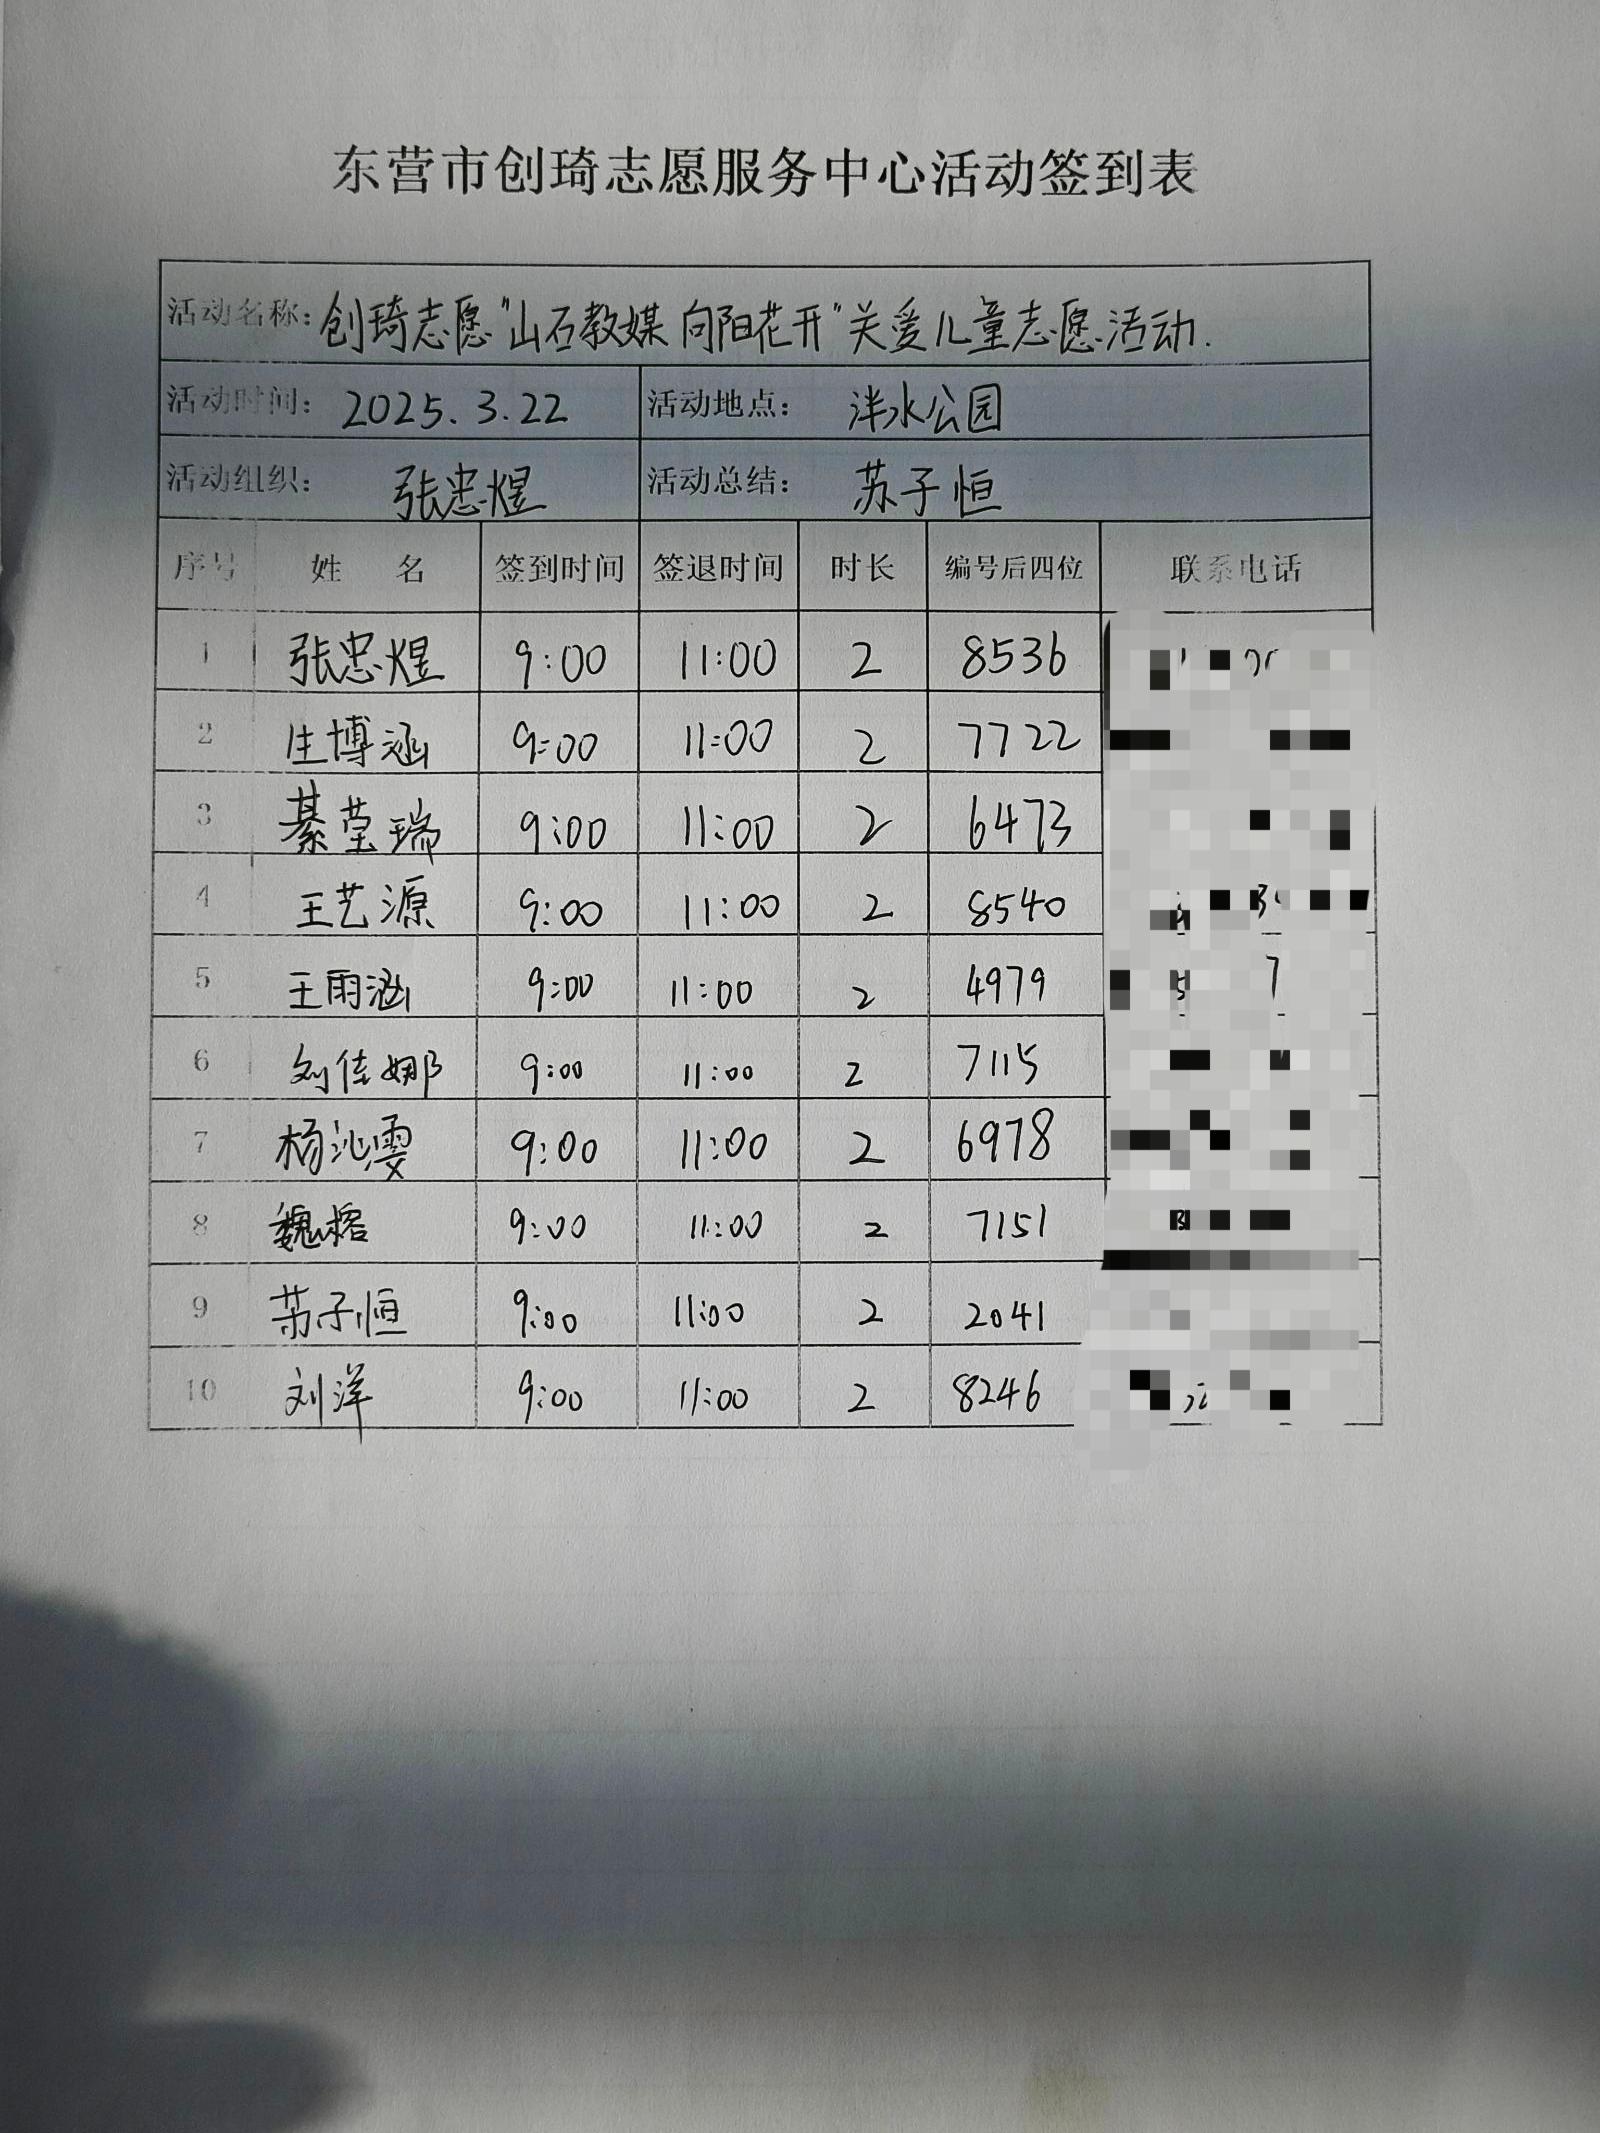 东营市创琦志愿服务中心活动签到表
活动名称：创琦志愿“山石教媒 向阳花开”关爱儿童志愿活动.
活动时间： 2025.3.22 活动地点： 泮水公园
活动组织： 张忠煜 活动总结： 苏子恒
序号 姓 名 签到时间 签退时间 时长 编号后四位 联系电话
1 张忠煜 9:00 11:00 2 8536
2 生博涵 9:00 11:00 2 7722
3 綦莹瑞 9:00 11:00 2 6473
4 王艺源 9:00 11:00 2 8540
5 王雨涵 9:00 11:00 2 4979
6 刘佳娜 9:00 11:00 2 7115
7 杨沁雯 9:00 11:00 2 6978
8 魏榕 9:00 11:00 2 7151
9 苏子恒 9:00 11:00 2 2041
10 刘洋 9:00 11:00 2 8246